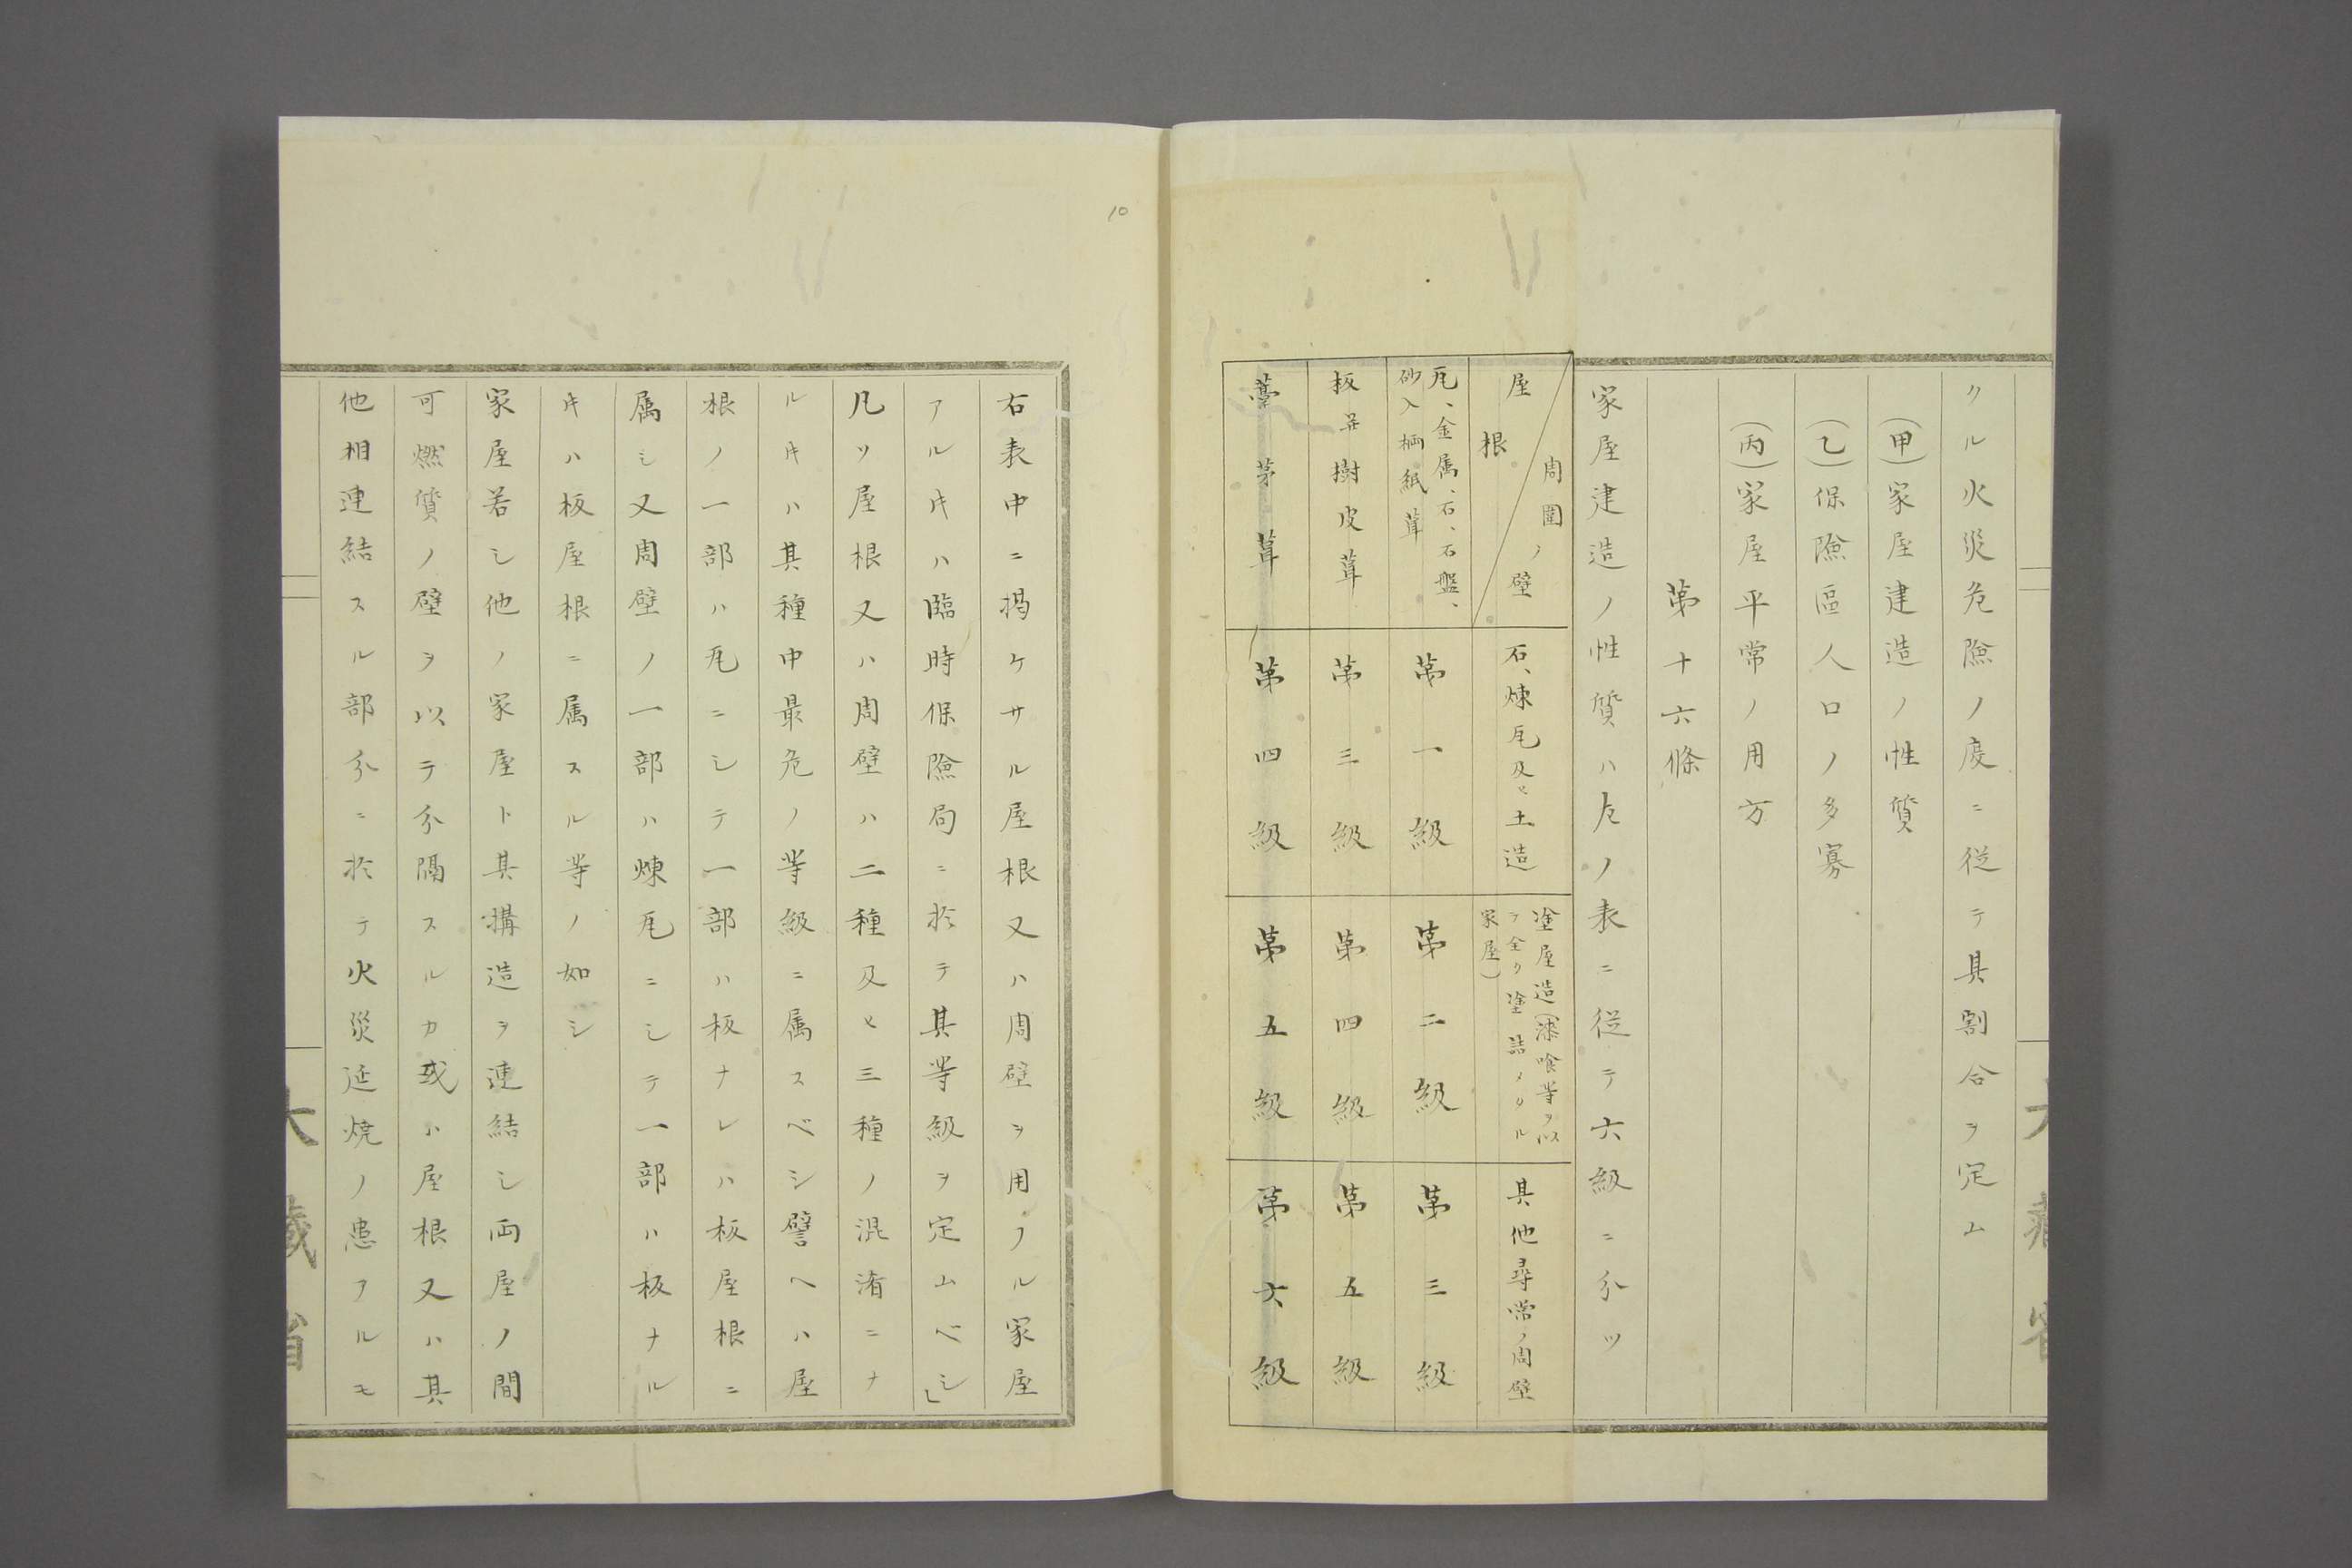 クル火災危險ノ度ニ從テ具割合ヲ定ム
(甲)家屋建造ノ性質
(乙)保險區人口ノ多寡
(丙)家屋平常ノ用方
第十六條
家屋建造ノ性質ハ左ノ表ニ從テ六級ニ分ツ
周圍ノ壁
屋根
石、煉瓦及ヒ土造
塗屋造(漆喰等ヲ以
テ全ク塗詰メタル
家屋)
其他尋常ノ周壁
瓦、金属、石、石盤、
砂入柄紙葺
第一級
第二級
第三級
板并樹皮葺
第三級
第四級
第五級
藁茅葺
第四級
第五級
第六級
右表中ニ掲ケサル屋根又ハ周壁ヲ用フル家屋
アル片ハ臨時保險局ニ於テ其等級ヲ定ムベシ」
凡ソ屋根又ハ周壁ハ二種及ヒ三種ノ混淆ニナ
ル片ハ其種中最危ノ等級ニ属スベシ譬ヘハ屋
根ノ一部ハ瓦ニシテ一部ハ板ナレハ板屋根ニ
属シ又周壁ノ一部ハ煉瓦ニシテ一部ハ板ナル
片ハ板屋根ニ属スル等ノ如シ
家屋若シ他ノ家屋ト其搆造ヲ連結シ両屋ノ間
可燃質ノ壁ヲ以テ分隔スルカ或ハ屋根又ハ其
他相連結スル部分ニ於テ火災延焼ノ患アルモ
10
大藏省